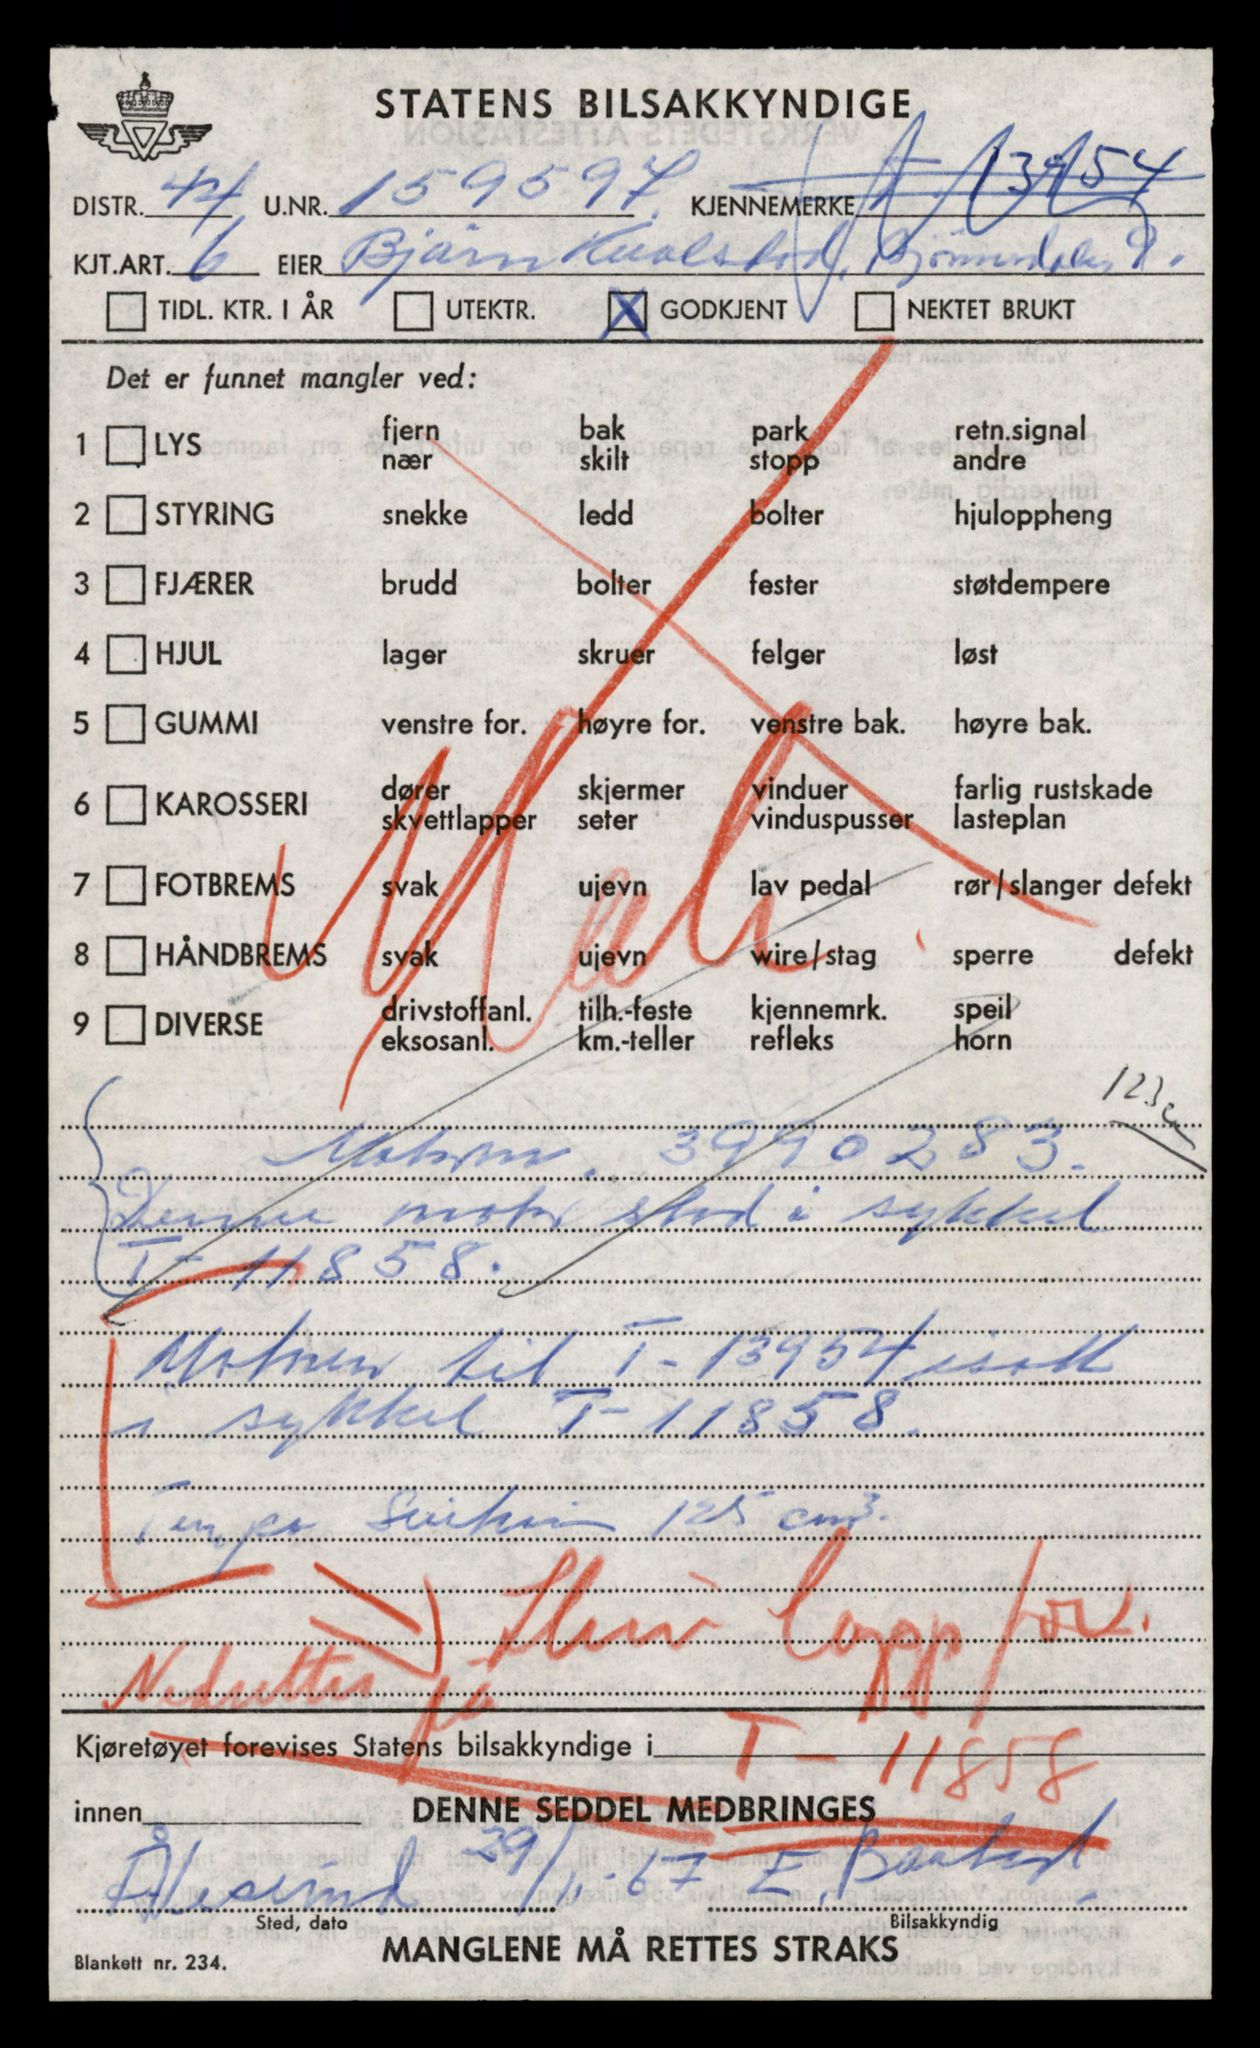 STATENS BILSAKKYNDIGE
DISTR. 44 U.NR. 159597. KJENNEMERKE T-13954
KJT.ART. 6 EIER Bjørn
TIDL. KTR. I ÅR UTEKTR. X GODKJENT NEKTET BRUKT
Det er funnet mangler ved:
1 LYS fjern nær bak skilt park stopp retn.signal andre
2 STYRING snekke ledd bolter hjuloppheng
3 FJÆRER brudd bolter fester støtdempere
4 HJUL lager skruer felger løst
5 GUMMI venstre for. høyre for. venstre bak. høyre bak.
6 KAROSSERI dører skvettlapper skjermer seter vinduer vinduspusser farlig rustskade lasteplan
7 FOTBREMS svak ujevn lav pedal rør/slanger defekt
8 HÅNDBREMS svak ujevn wire/stag sperre defekt
9 DIVERSE drivstoffanl. eksosanl. tilh.-feste km.-teller kjennemrk. refleks speil horn
Motornr. 3990283.
Denne motor stod i sykkel
T-11858.
Motoren til T-13954 isatt
i sykkel T-11858.
Tempo 125 cm³.
på
Kjøretøyet forevises Statens bilsakkyndige i T-11858
innen DENNE SEDDEL MEDBRINGES
Ålesund 29/1-67 E.
Sted, dato Bilsakkyndig
Blankett nr. 234. MANGLENE MÅ RETTES STRAKS